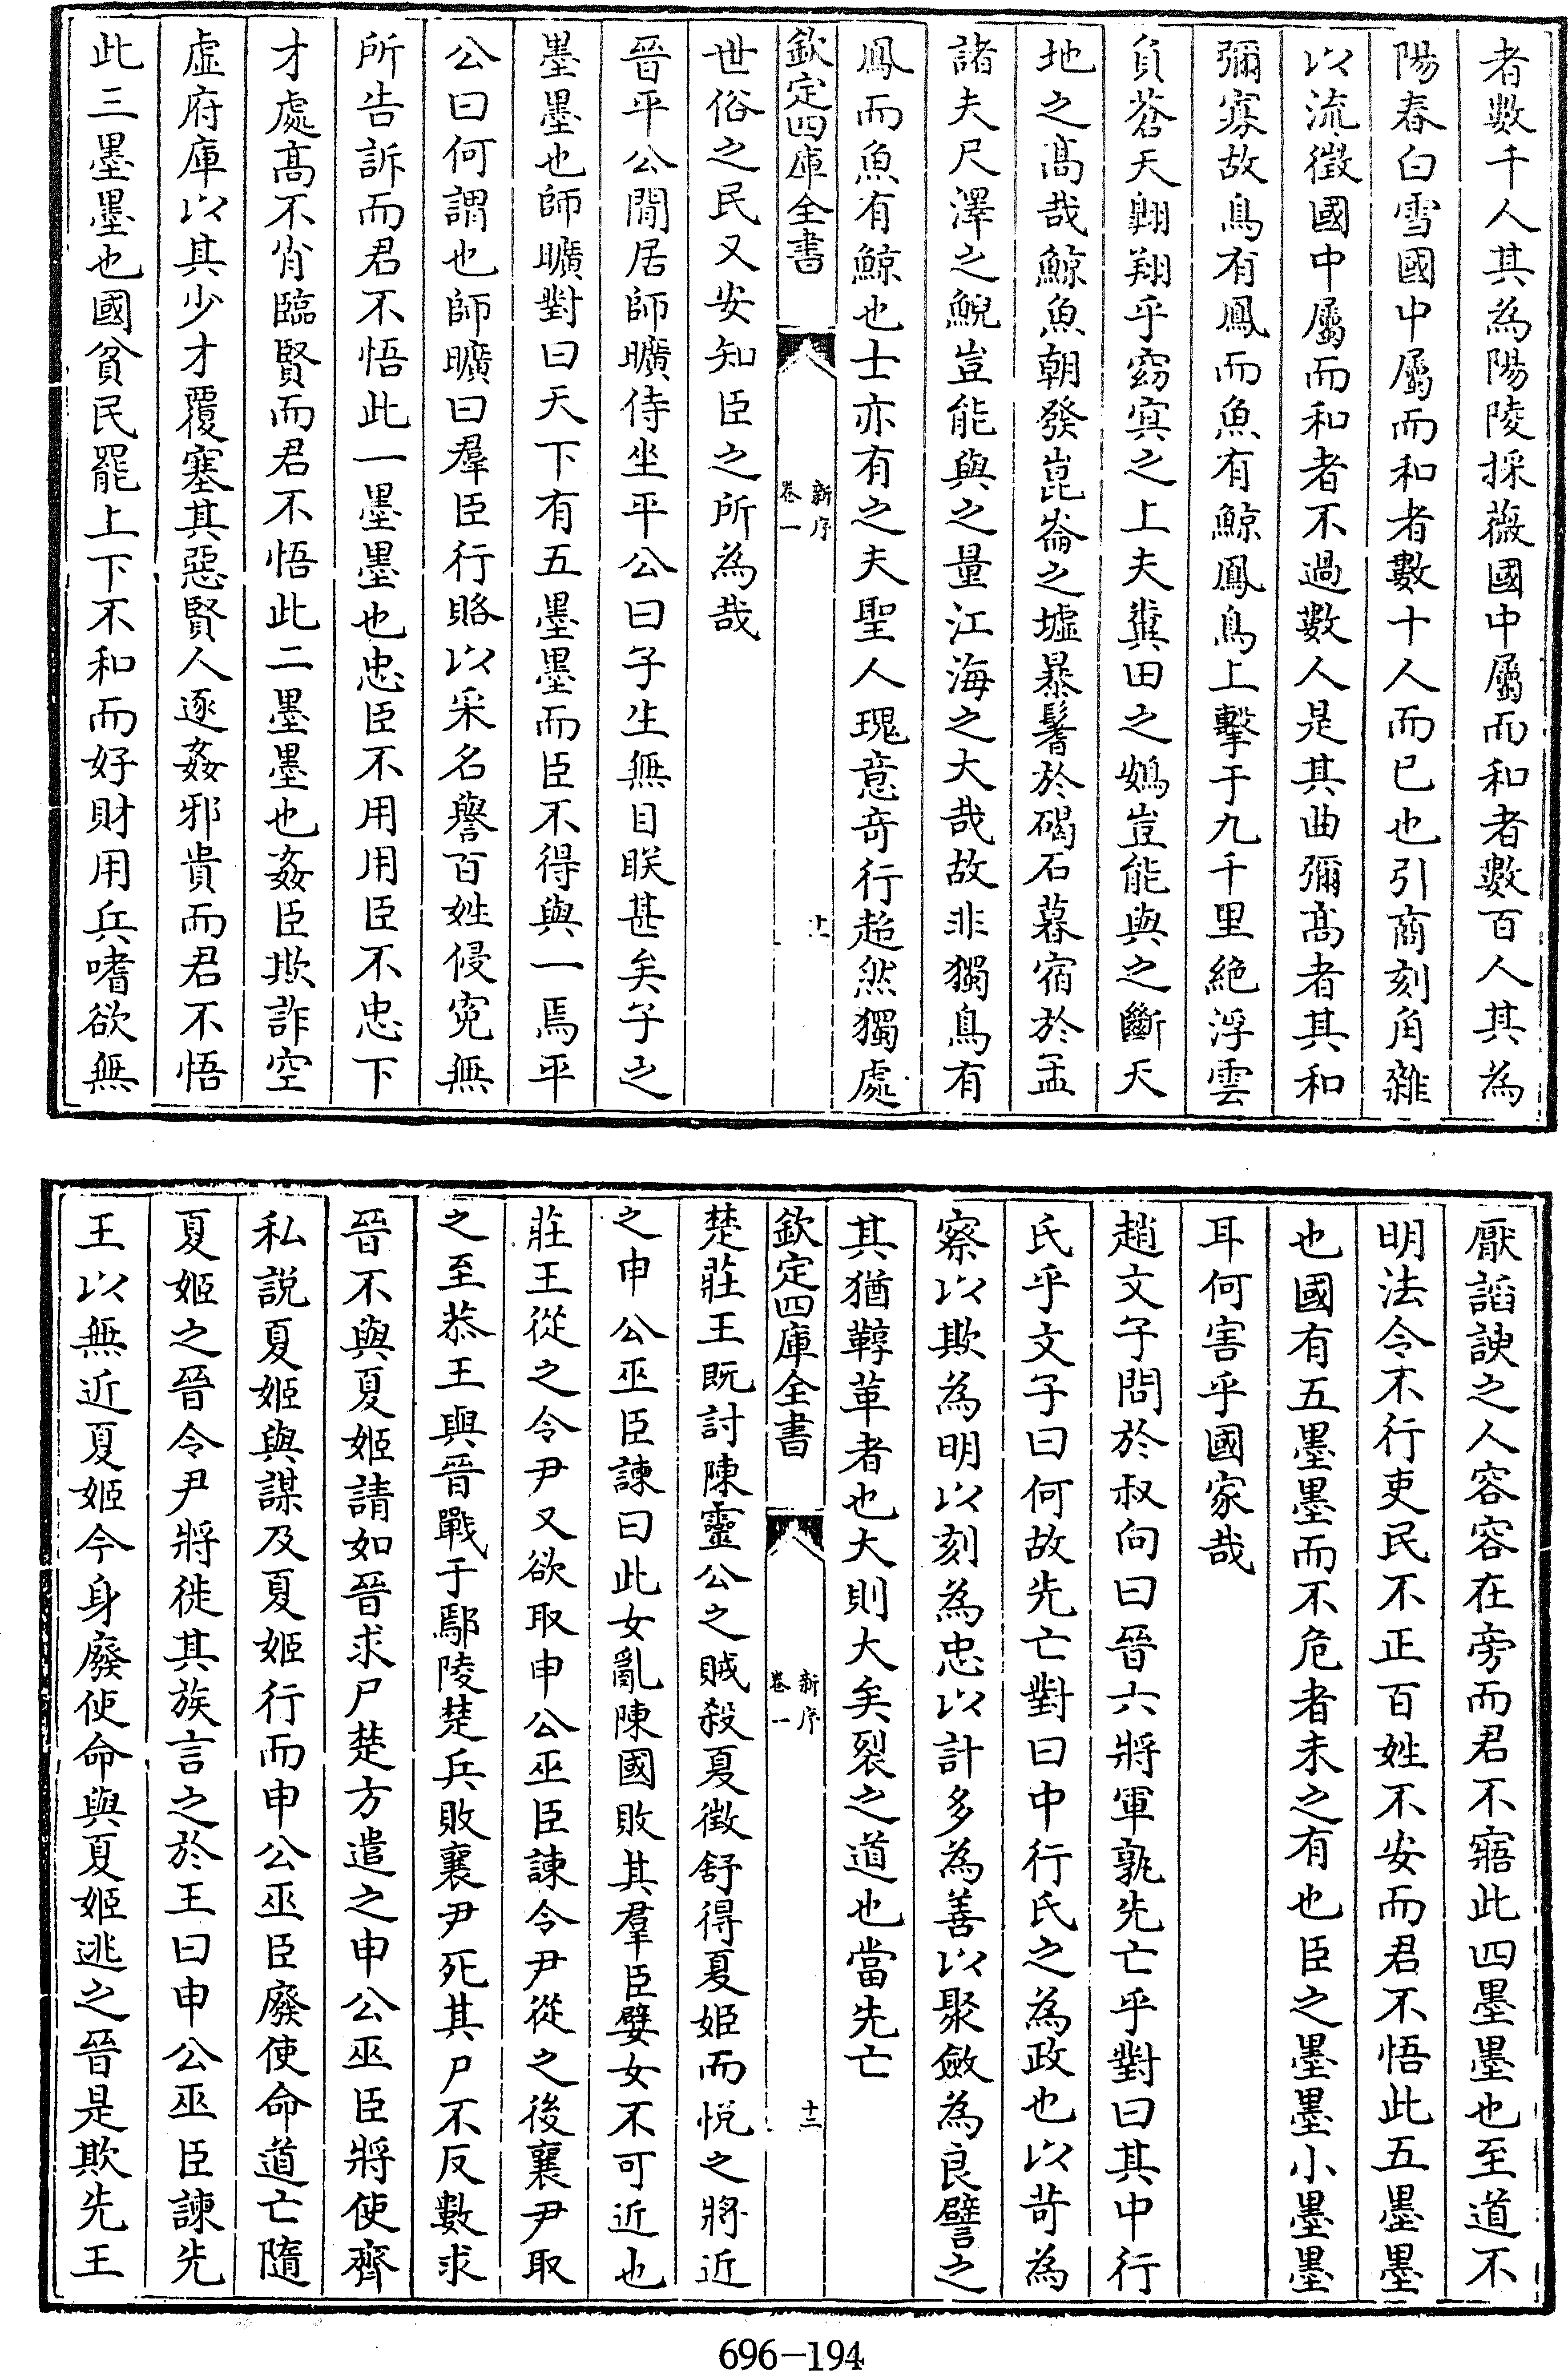 者數千人其為陽陵採薇國中屬而和者數百人其為
陽春白雪國中屬而和者數十人而已也引商刻角雜
以流徵國中屬而和者不過數人是其曲彌髙者其和
彌寡故鳥有鳳而魚有鯨鳳鳥上擊于九千里絶浮雲
負蒼天翺翔乎窈冥之上夫糞田之鴳豈能與之斷天
地之髙哉鯨魚朝發崑崙之墟暴鬐於碣石暮宿於孟
諸夫尺澤之鯢豈能與之量江海之大哉故非獨鳥有
鳳而魚有鯨也士亦有之夫聖人瑰意奇行超然獨處
欽定四庫全書
新序
卷一
十一
世俗之民又安知臣之所為哉
晉平公閒居師曠侍坐平公曰子生無目眹甚矣子之
墨墨也師曠對曰天下有五墨墨而臣不得與一焉平
公曰何謂也師曠曰羣臣行賂以采名譽百姓侵寃無
所告訴而君不悟此一墨墨也忠臣不用用臣不忠下
才處髙不肖臨賢而君不悟此二墨墨也姦臣欺詐空
虛府庫以其少才覆塞其惡賢人逐姦邪貴而君不悟
此三墨墨也國貧民罷上下不和而好財用兵嗜欲無
厭謟諛之人容容在旁而君不寤此四墨墨也至道不
明法令不行吏民不正百姓不安而君不悟此五墨墨
也國有五墨墨而不危者未之有也臣之墨墨小墨墨
耳何害乎國家哉
趙文子問於叔向曰晉六將軍孰先亡乎對曰其中行
氏乎文子曰何故先亡對曰中行氏之為政也以苛為
察以欺為明以刻為忠以計多為善以聚斂為良譬之
其猶鞟革者也大則大矣裂之道也當先亡
欽定四庫全書
新序
卷一
十二
楚莊王既討陳靈公之賊殺夏徵舒得夏姬而悅之將近
之申公巫臣諫曰此女亂陳國敗其羣臣嬖女不可近也
莊王從之令尹又欲取申公巫臣諫令尹從之後襄尹取
之至恭王與晉戰于鄢陵楚兵敗襄尹死其尸不反數求
晉不與夏姬請如晉求尸楚方遣之申公巫臣將使齊
私説夏姬與謀及夏姬行而申公巫臣廢使命道亡隨
夏姬之晉令尹將徙其族言之於王曰申公巫臣諫先
王以無近夏姬今身廢使命與夏姬逃之晉是欺先王
696-194